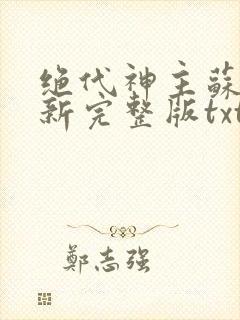 绝代神主蘇
新完整版txt
鄭志强